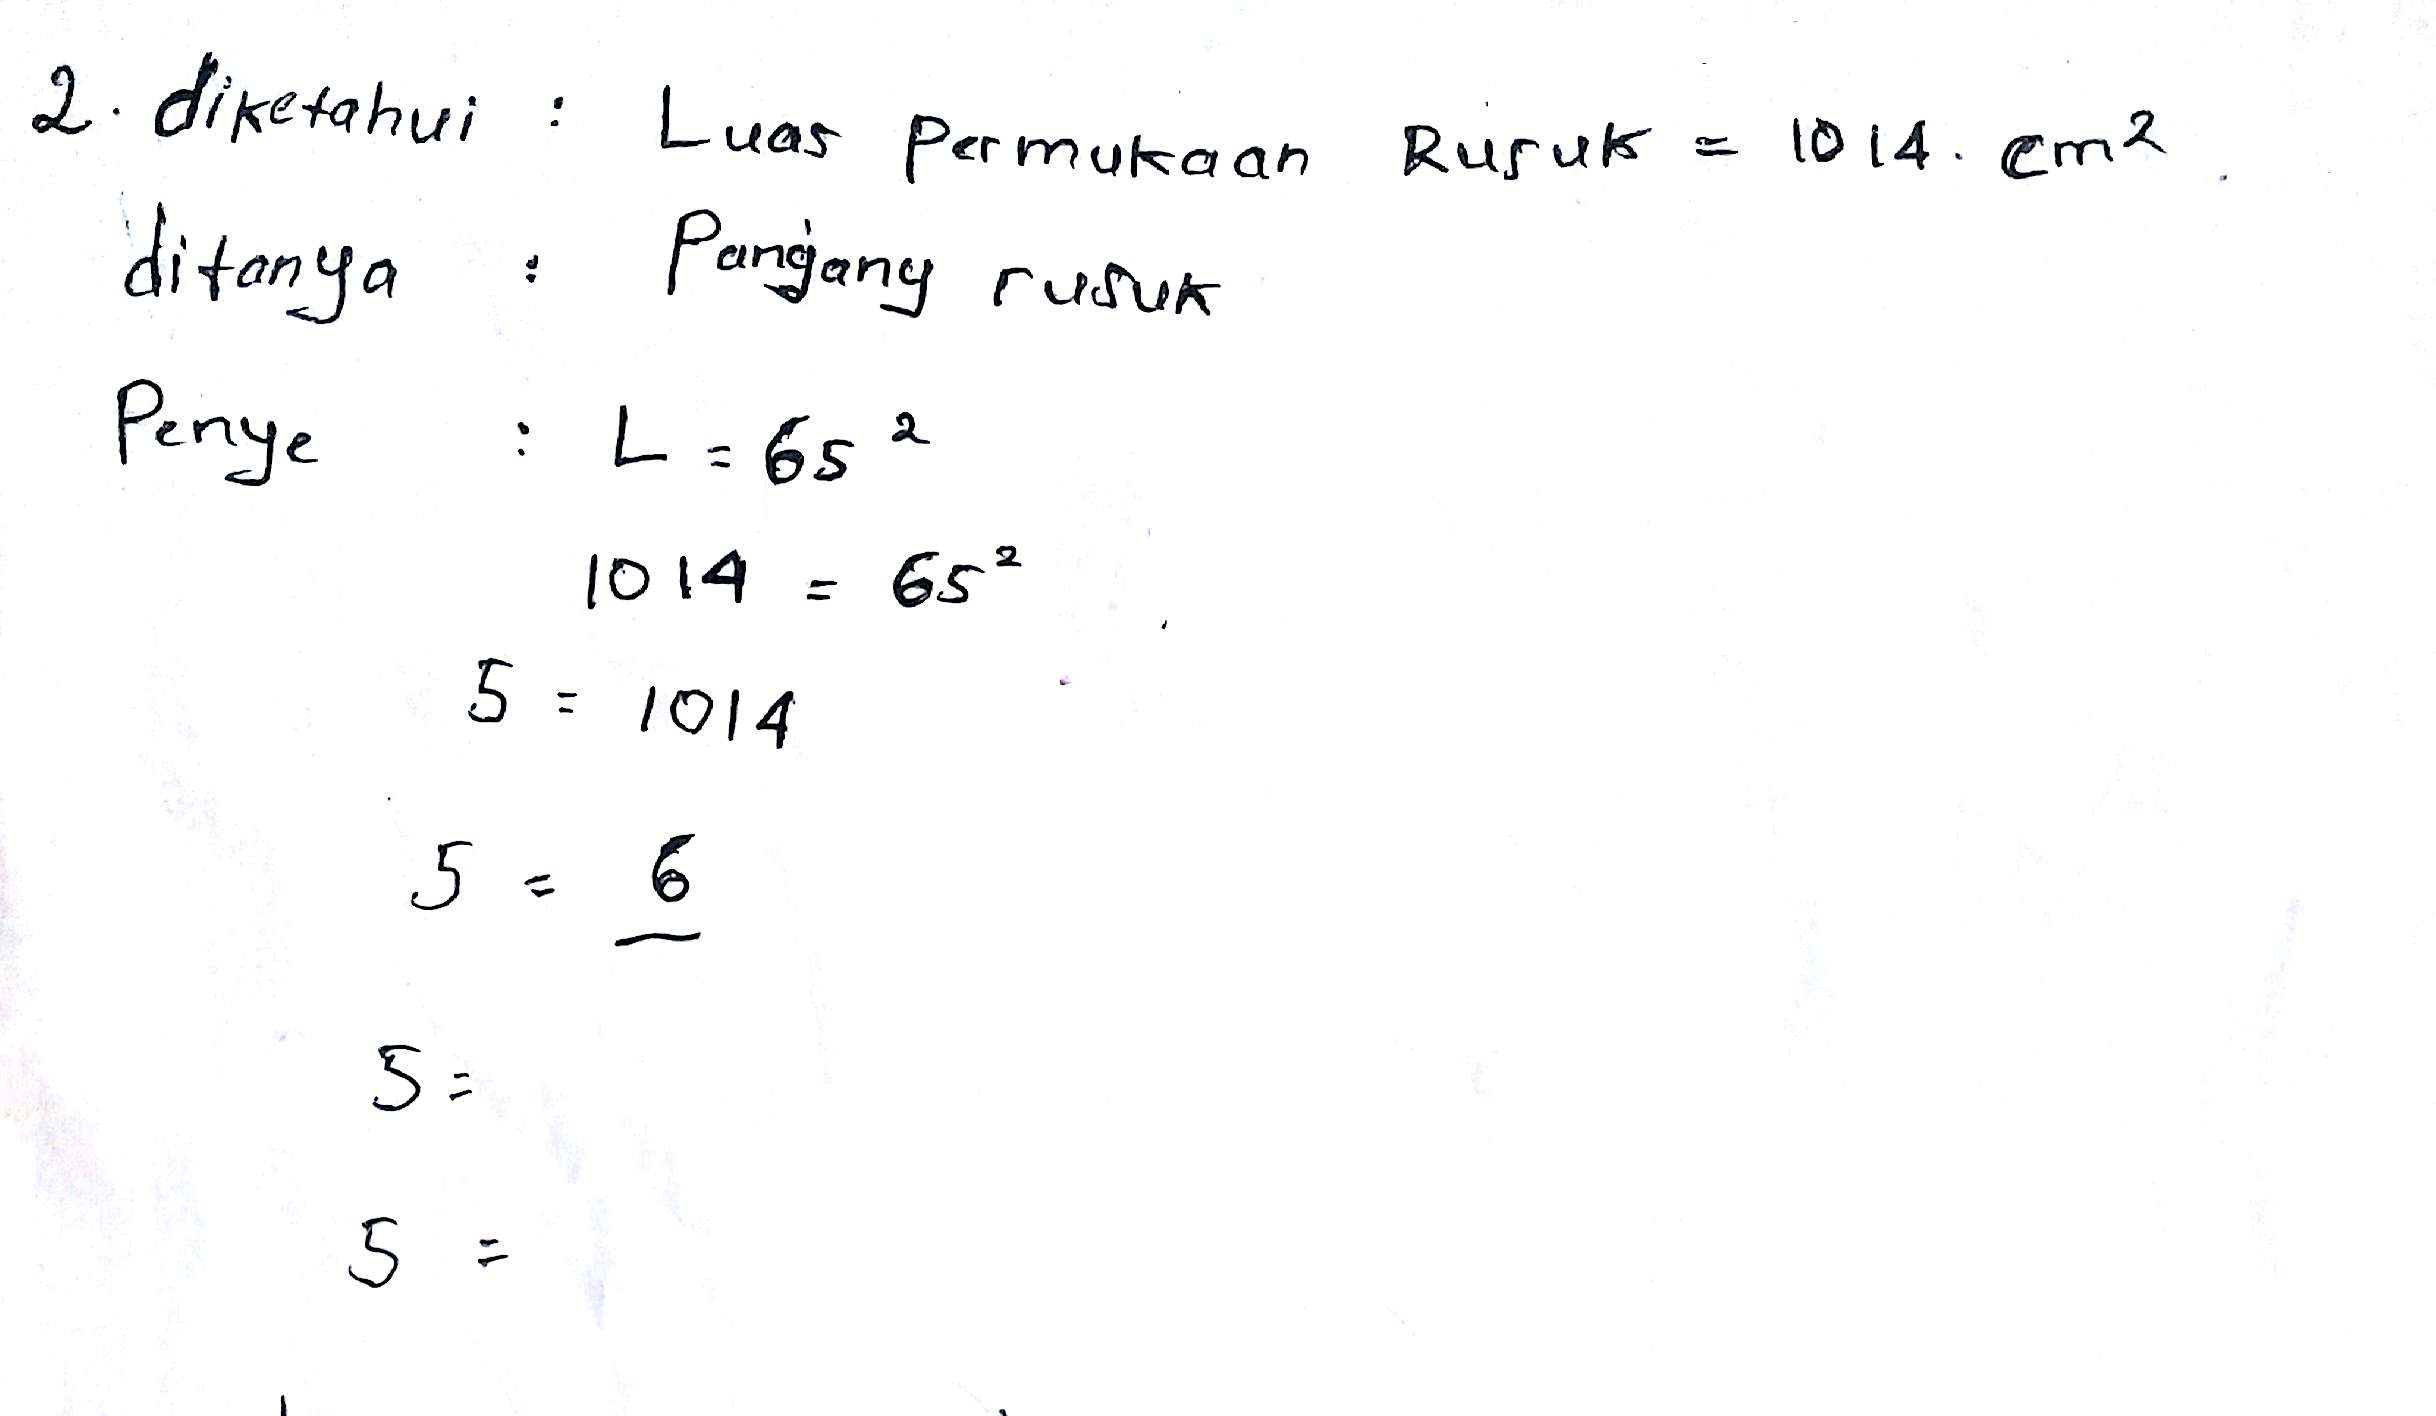 2. diketahui : Luas Permukaan Rusuk = 1014. cm²
ditanya : Panjang rusuk
Penye : L = 6s²
1014 = 6s²
s = 1014
s = 6
s =
s =